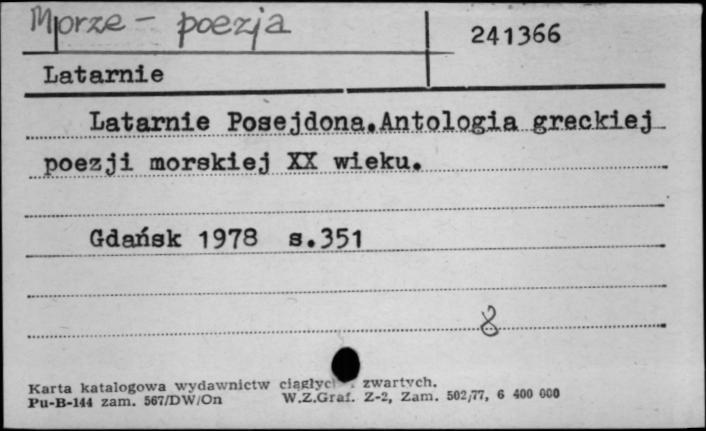 Morze - poezja
241366
Latarnie
Latarnie Posejdona.Antologia greckiej
poezji morskiej XX wieku.
Gdańsk 1978 s.351
8
Karta katalogowa wydawnictw zwartych.
Pu-B-144 zam. 567/DW/On W.Z.Graf. Z-2, Zam. 502/77, 6 400 000